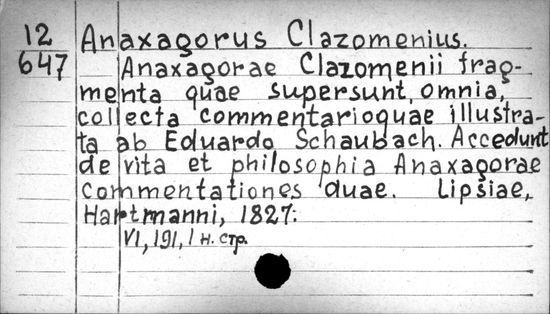 12
647
Anaxagorus Clazomenius.
Anaxagorae Clazomenii frag-
menta quae supersunt, omnia,
collecta commentarioquae illustra-
ta ab Eduardo Schaubach. Accedunt
de vita et philosophia Anaxagorae
commentationes duae. Lipsiae,
Hartmanni, 1827.
VI, 191, 1 н. стр.